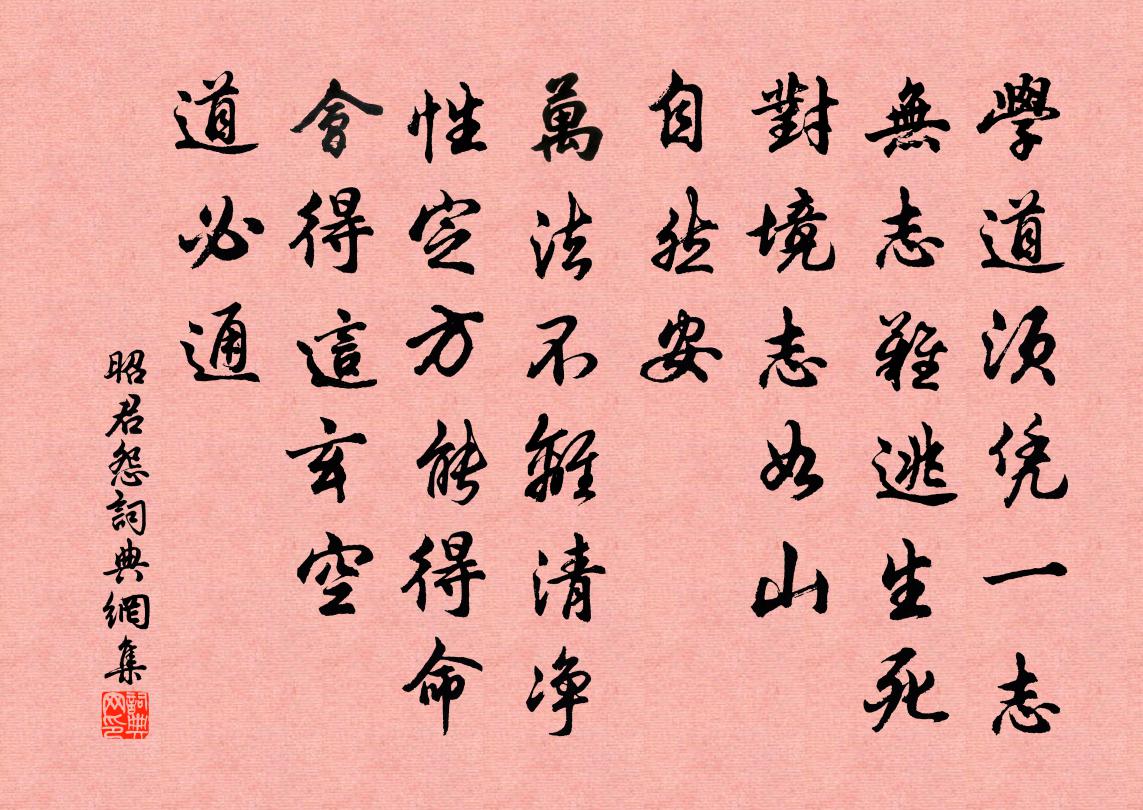 學道須凭一志
無志難逃生死
對境志如山
自然安
萬法不離清淨
性定方能得命
會得這玄空
道必通
昭君怨詞典網集
詞典网印